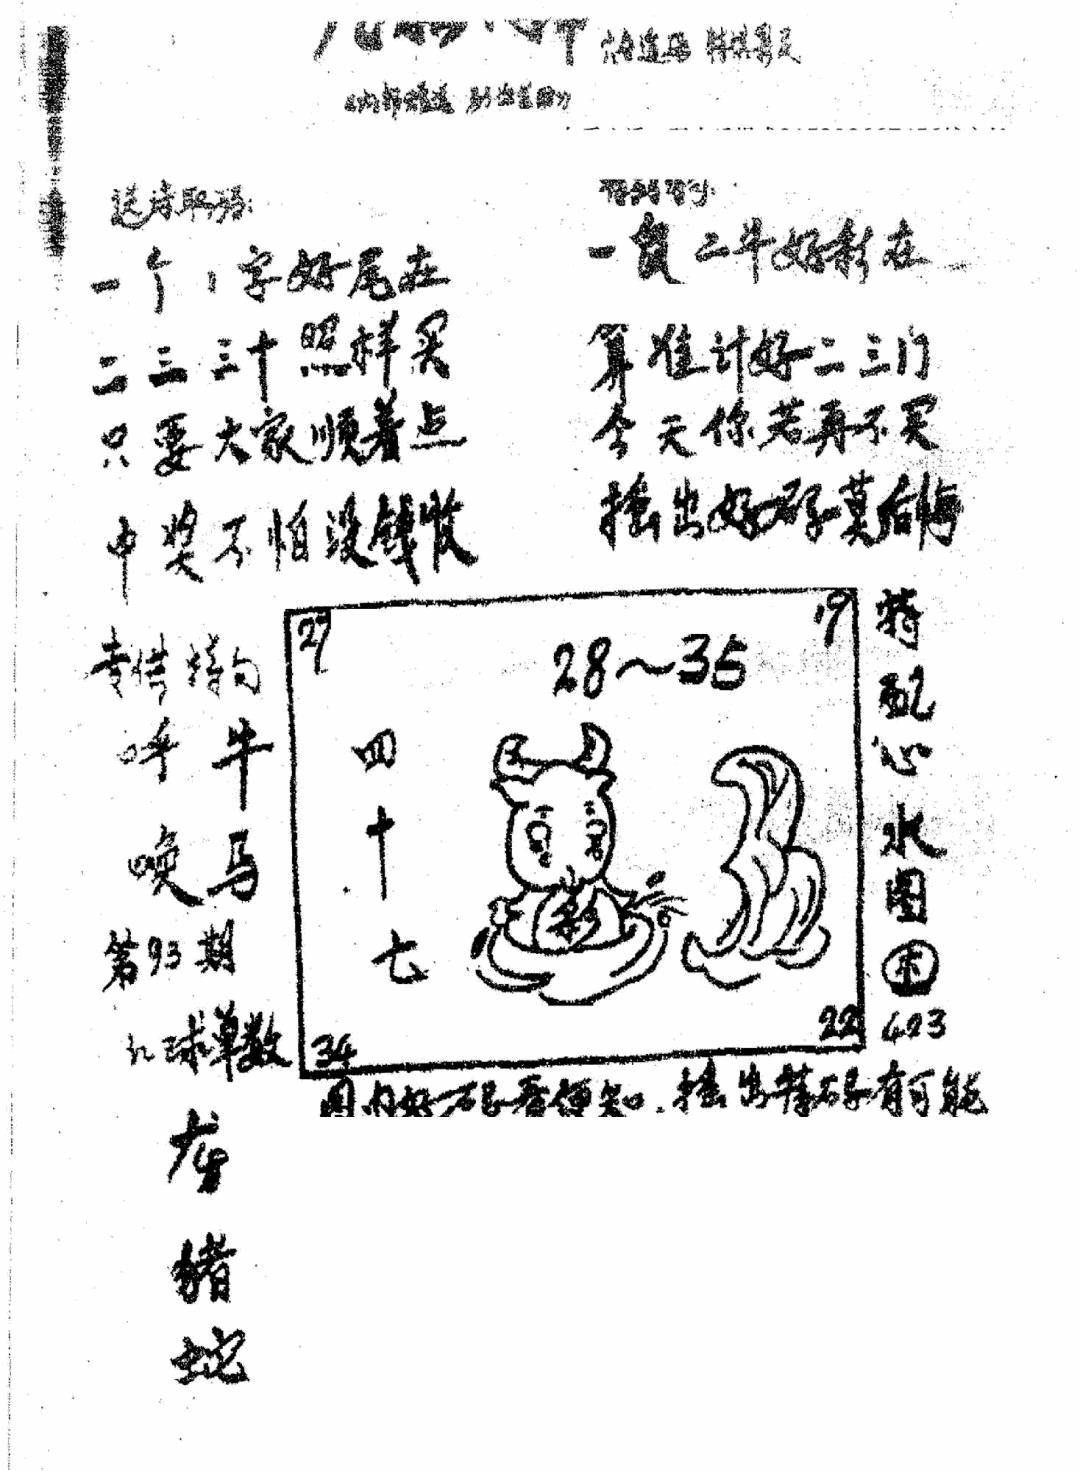 一个1字好尾在
二三三十照样买
只要大家顺着点
中奖不怕没钱收
一鼠二牛好彩在
算准计好二三门
今天你若再不买
摇出好码莫后悔
专供特句
呼唤
牛马
第93期
红球单数
龙
猪
蛇
27
19
28~35
四十七
彩
34
22
特配心水图
423
图内好码看便知.摇出特码有可能